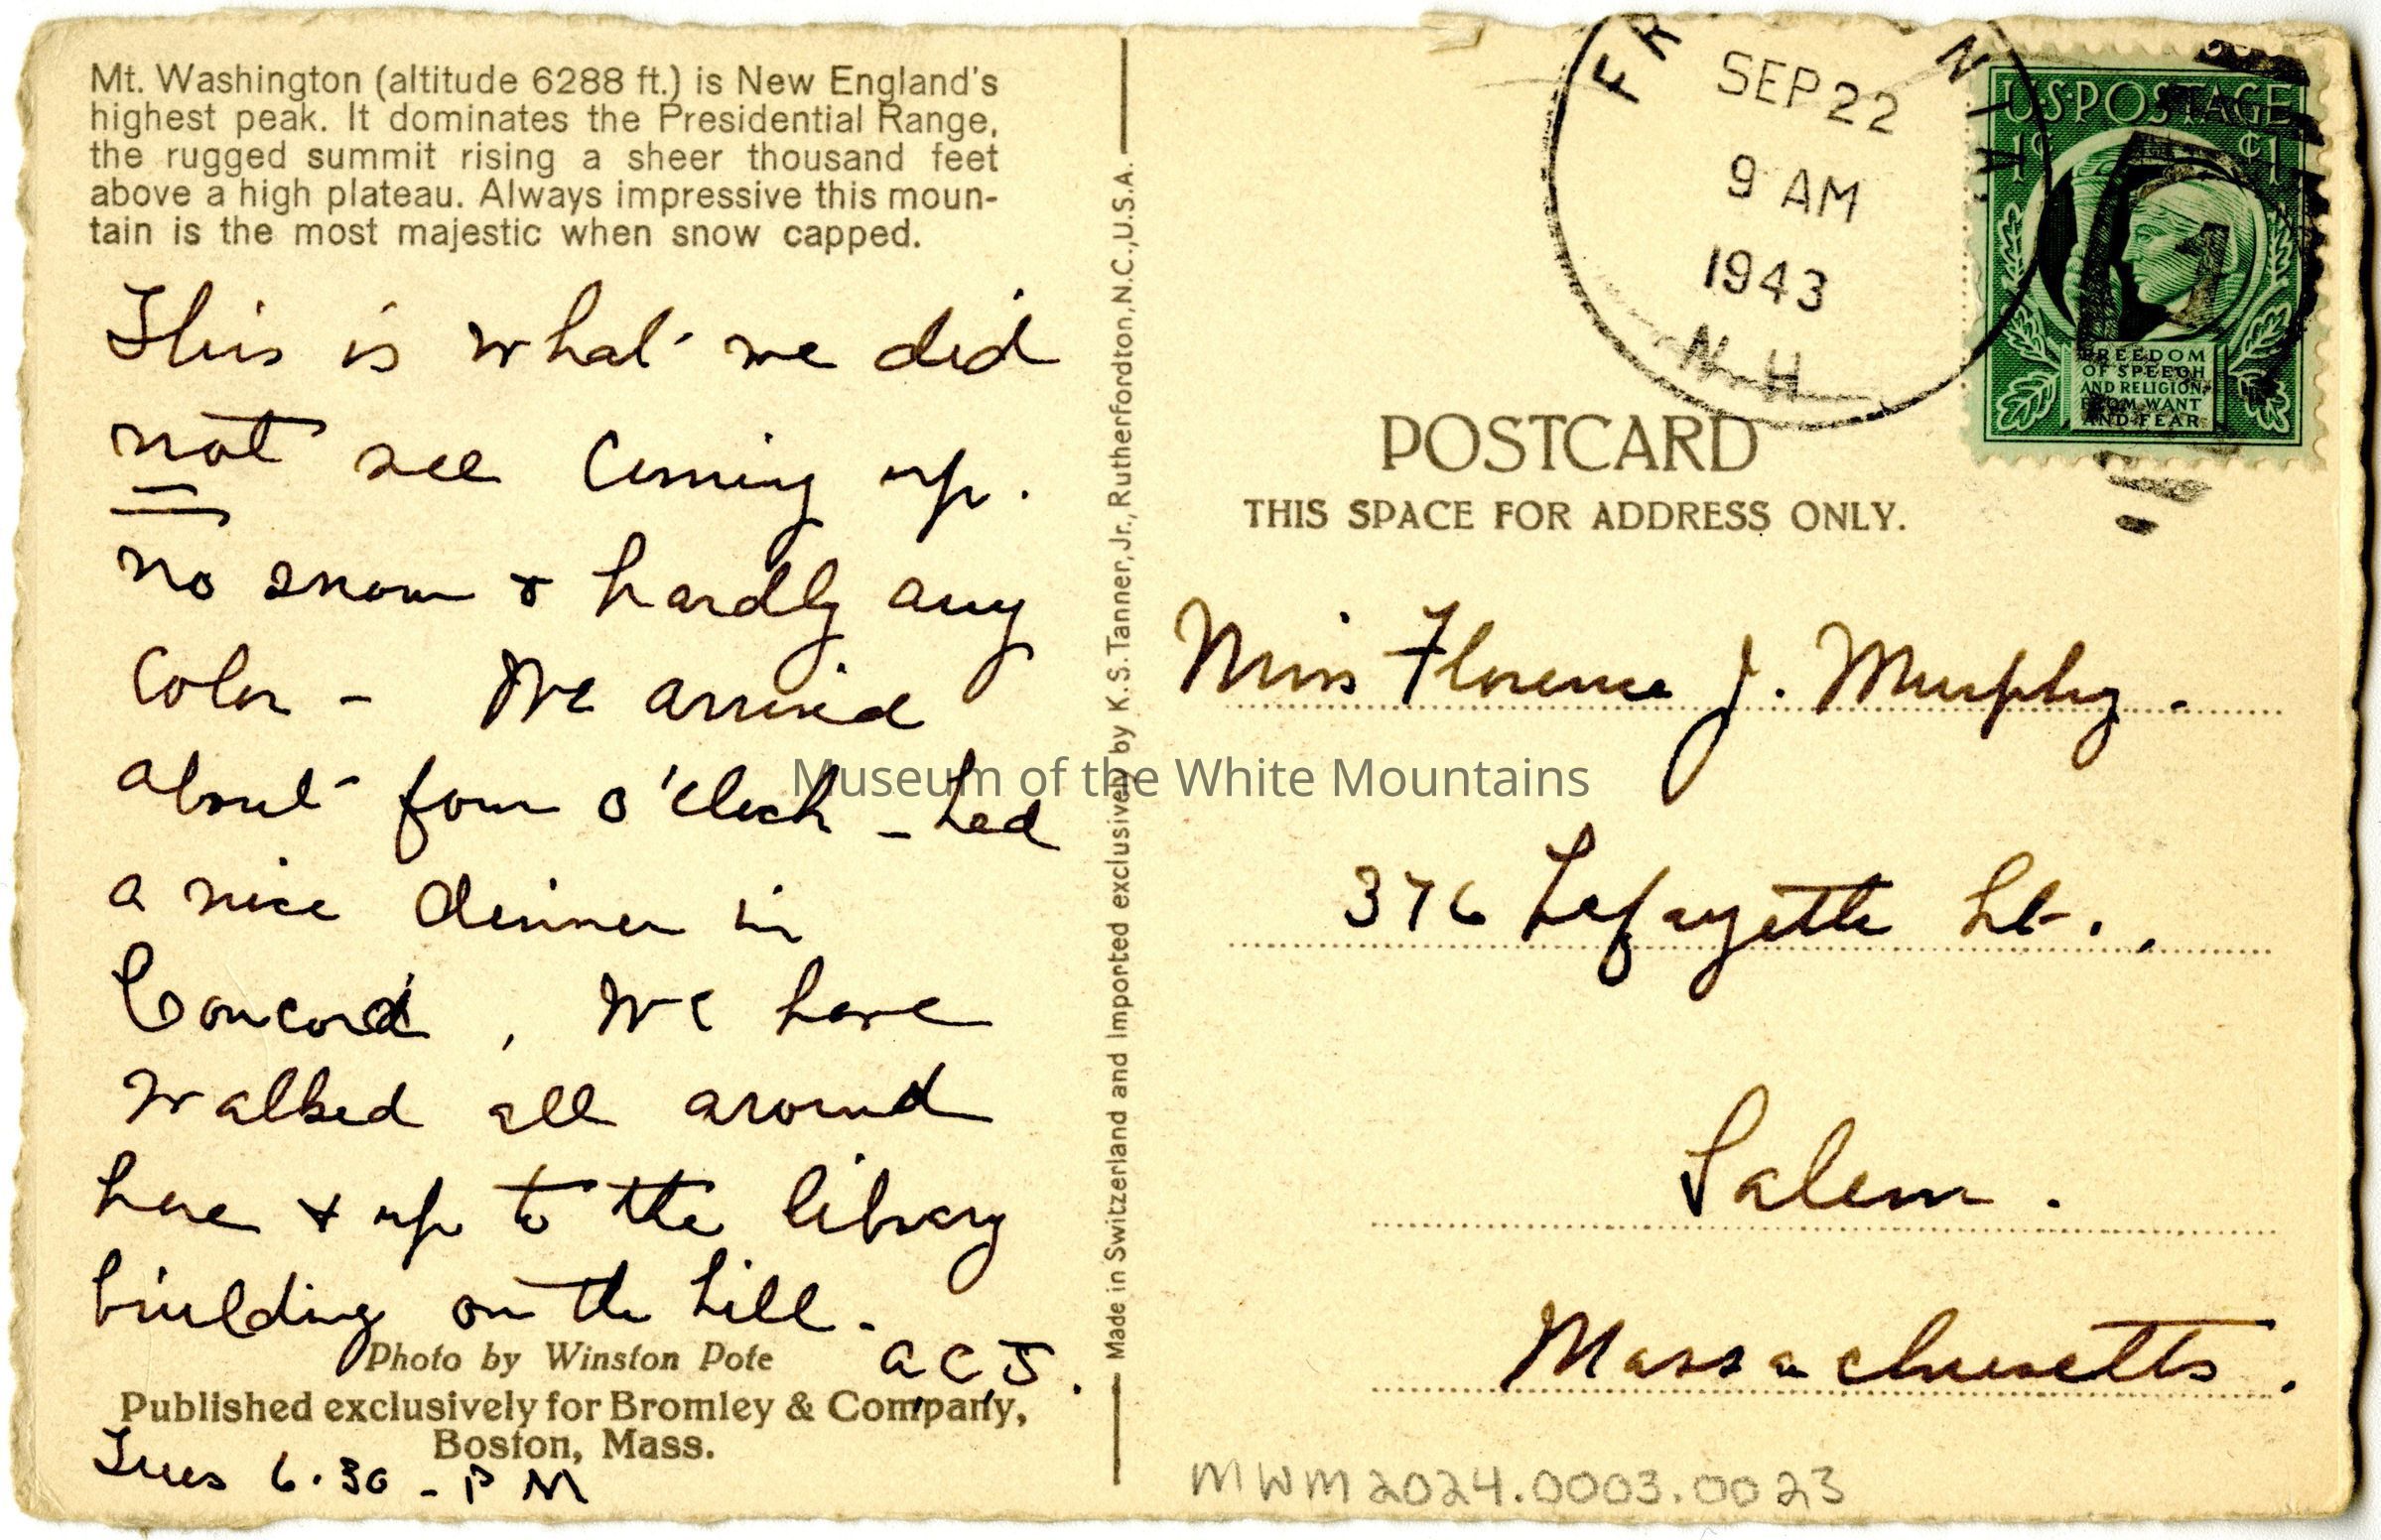 Mt. Washington (altitude 6288 ft.) is New England's
highest peak. It dominates the Presidential Range,
the rugged summit rising a sheer thousand feet
above a high plateau. Always impressive this moun-
tain is the most majestic when snow capped.
This is what we did
not see coming up.
no snow & hardly any
color - We arrived
about four o'clock - had
a nice dinner in
Concord, We have
walked all around
here & up to the library
building on the hill.
Photo by Winston Pote
A C J.
Published exclusively for Bromley & Company,
Boston, Mass.
Tues 6.30 - PM
Made in Switzerland and Imported exclusively by K.S. Tanner, Jr., Rutherfordton, N.C., U.S.A.
FR NIA
SEP 22
9 AM
1943
N.H.
US POSTAGE
1¢ ¢1
FREEDOM
OF SPEECH
AND RELIGION,
FROM WANT
AND FEAR
POSTCARD
THIS SPACE FOR ADDRESS ONLY.
Miss Florence J. Murphy.
Museum of the White Mountains
376 Lafayette St.,
Salem.
Massachusetts.
MWM2024.0003.0023